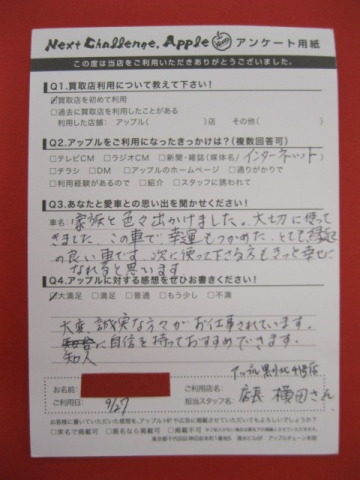 Next Challenge, Apple アンケート用紙
この度は当店をご利用いただきありがとうございました。
Q1.買取店利用について教えて下さい!
☑買取店を初めて利用
□過去に買取店を利用したことがある
利用した店舗: アップル( )店 その他( )
Q2.アップルをご利用になったきっかけは?(複数回答可)
□テレビCM □ラジオCM □新聞・雑誌(媒体名/インターネット)
□チラシ □DM □アップルのホームページ □通りがかりで
□利用経験があるので □紹介 □スタッフに誘われて
Q3.あなたと愛車との思い出を聞かせください!
車名: 家族と色々出かけました。大切に使って
きました。この車で幸運もつかめた、とても縁起
の良い車です。次に使って下さる方もきっと幸せに
なれると思います
Q4.アップルに対する感想をぜひお書きください!
☑大満足 □満足 □普通 □もう少し □不満
大変、誠実な方々がお仕事されています。
に自信を持っておすすめできます。
知人
お名前:
ご利用日: 9/27
ご利用店名:
担当スタッフ名: 店長 横田さん
お客様に書いていただいた感想を、アップルHPや広告に掲載させていただいてもよろしいでしょうか?
□実名で掲載可 □匿名なら掲載可 □掲載不可